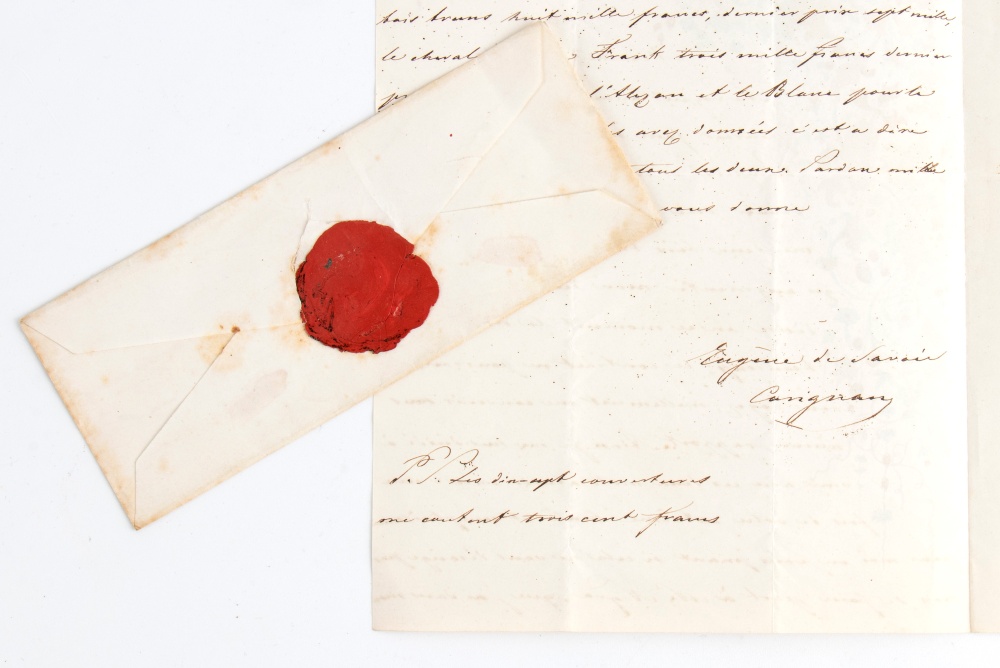 bais bruns huit mille francs, dernier prix sept mille,
le cheval Frank trois mille francs dernier
l'Alezan et le Blanc pour le
c'est a dire
tous les deux. Pardon mille
vous donne
Eugène de Savoie
Carignan
P. S. Les dix-sept couvertures
me coutent trois cent francs